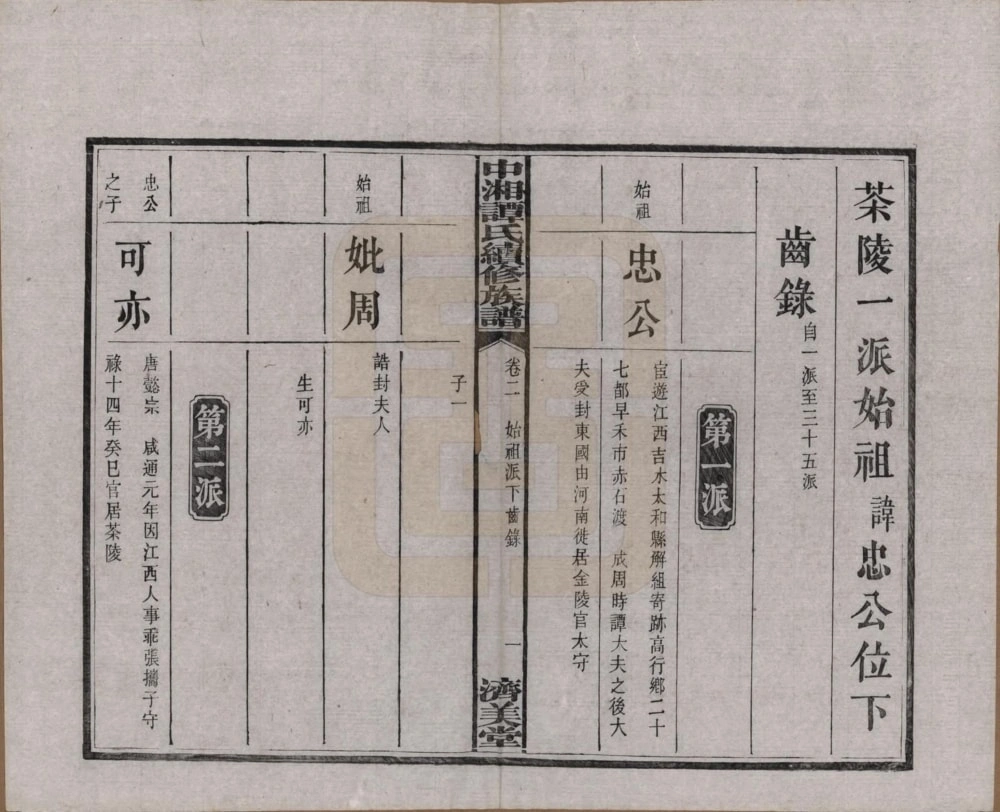 茶陵一派始祖諱忠公位下
齒錄自一派至三十五派
第一派
始祖
忠公
宦遊江西吉水太和縣解組寄跡高行鄉二十
七都早禾市赤石渡 成周時譚大夫之後大
夫受封東國由河南徙居金陵官太守
中湘譚氏續修族譜
卷二 始祖派下齒錄 一
濟美堂
子一
始祖
妣周
誥封夫人
生可亦
第二派
忠公
之子
可亦
唐懿宗 咸通元年因江西人事乖張攜子守
祿十四年癸巳官居茶陵